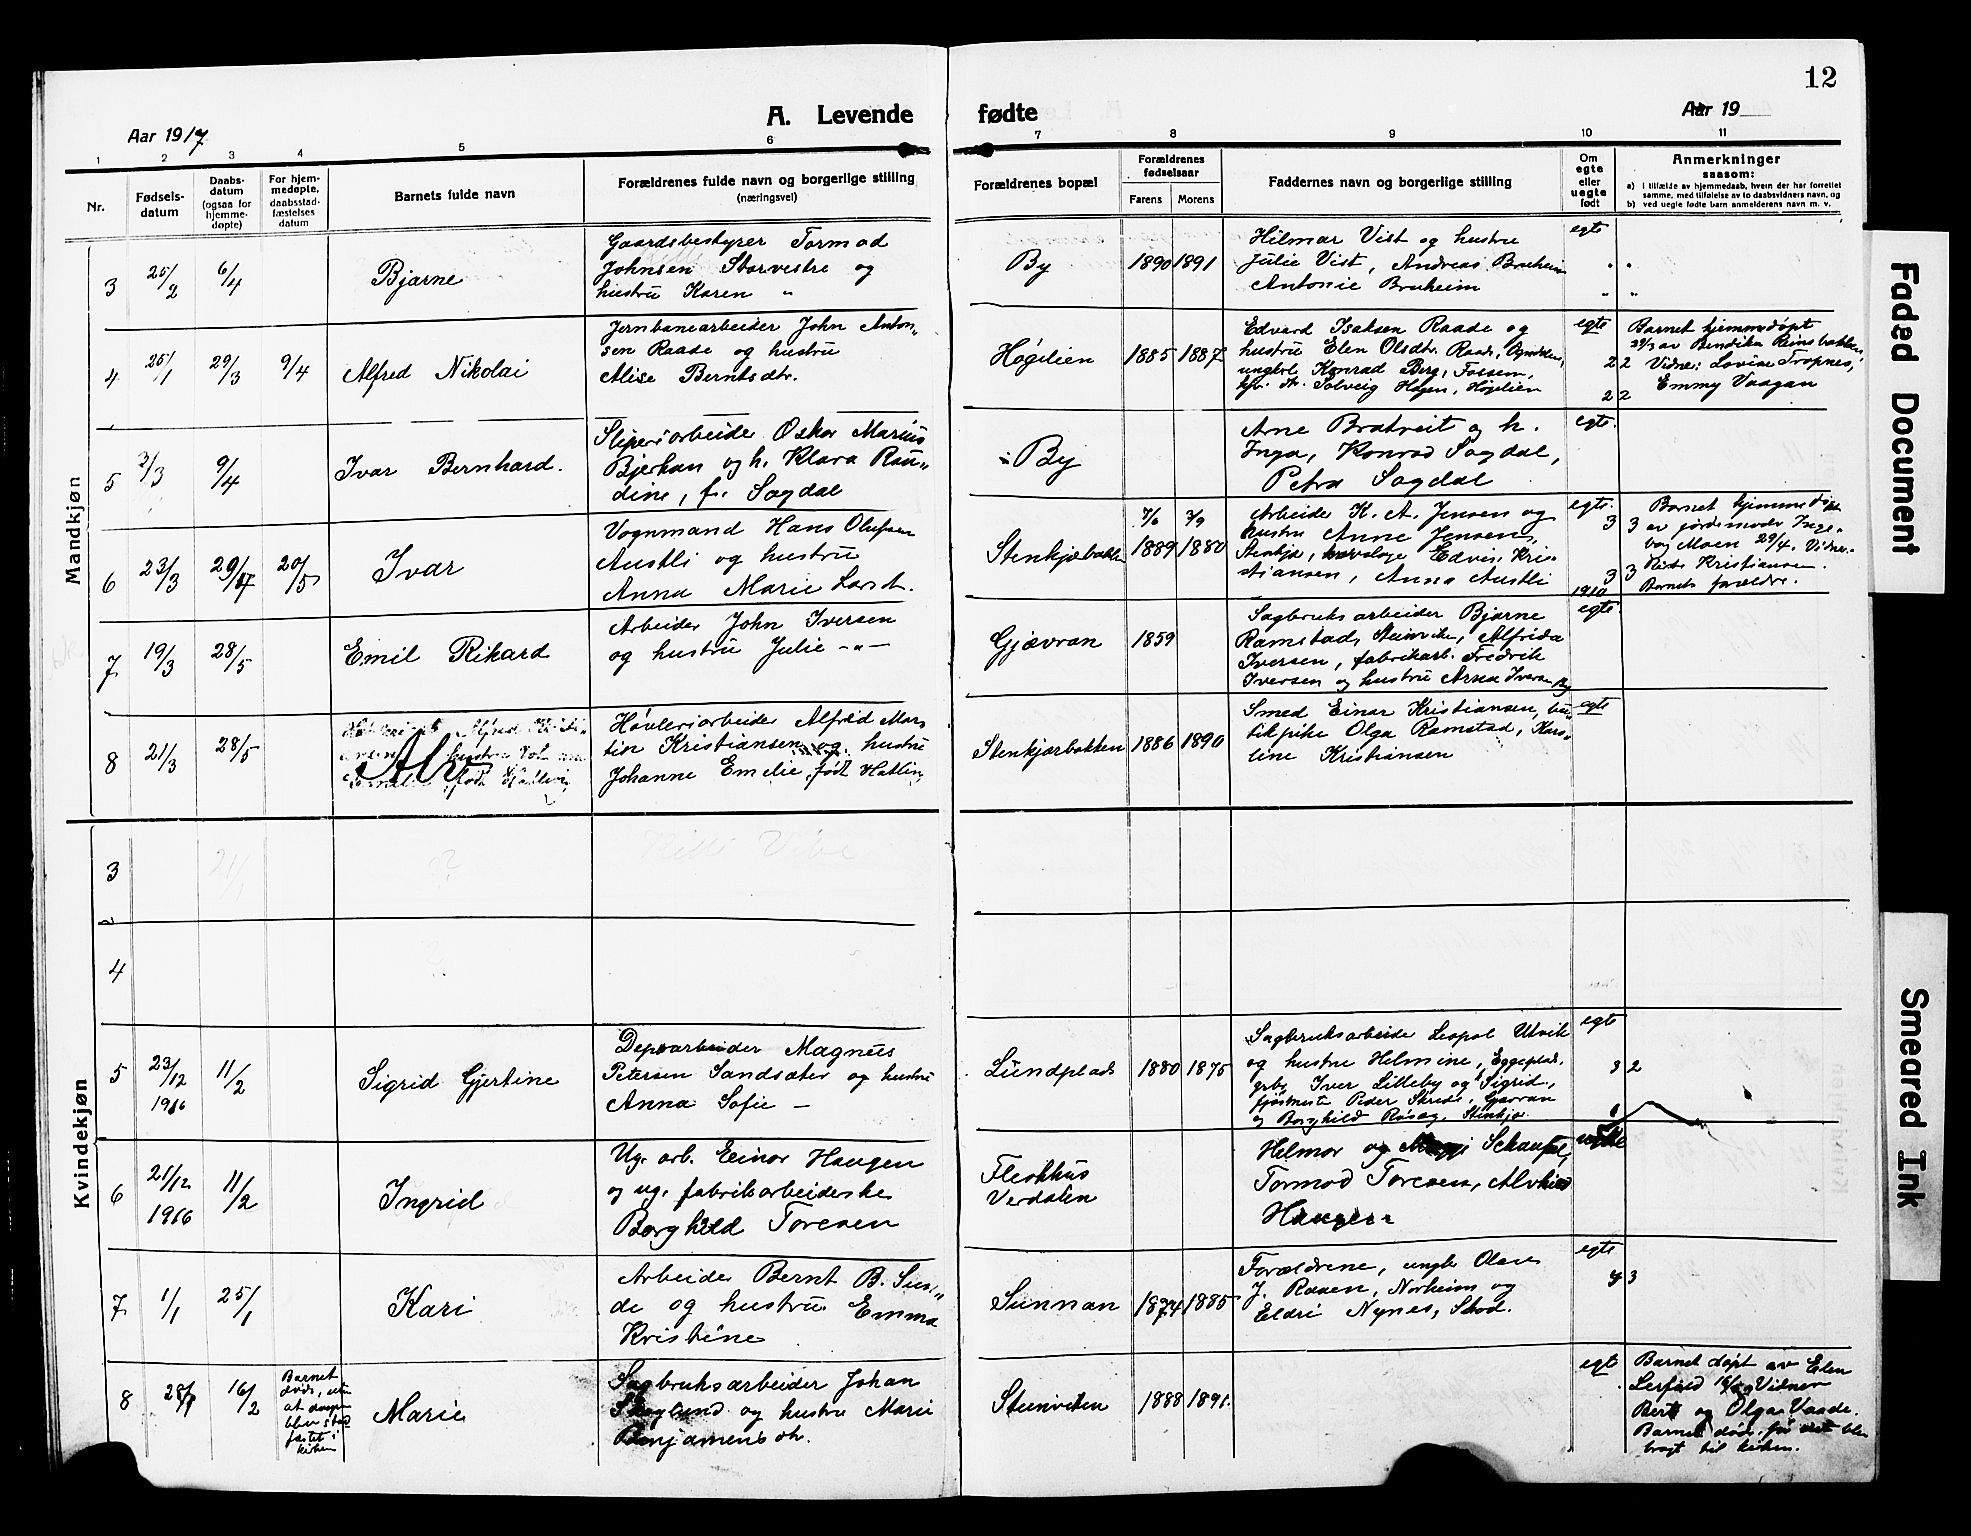 12
A. Levende fødte
Aar 1917
Aar 19
1 2 3 4 5 6 7 8 9 10 11
Nr.
Fødsels-
datum
Daabs-
datum
(ogsaa for
hjemme-
døpte)
For hjem-
medøpte,
daabsstad-
fæstelses
datum
Barnets fulde navn
Forældrenes fulde navn og borgerlige stilling
(næringsvei)
Forældrenes bopæl
Forældrenes
fødselsaar
Farens Morens
Faddernes navn og borgerlige stilling
Om
egte
eller
uegte
født
Anmerkninger
saasom:
a) i tilfælde av hjemmedaab, hvem der har forrettet
samme, med tilføielse av to daabsvidners navn, og
b) ved uegte fødte barn anmelderens navn m. v.
Mandkjøn
3 25/2 6/4
Bjarne
Gaardsbestyrer Tormod
Johnsen Storvestre og
hustru Karen "
By
1890 1891
Hilmar Vist og hustru
Julie Vist, Andreas Bruheim
Antonie Bruheim
egte
4 25/1 29/3 9/4
Alfred Nikolai
Jernbanearbeider John Anton-
sen Raade og hustru
Alise Berntsdtr.
Høgelien
1885 1887
Edvard Isaksen Raade og
hustru Elen Olsdtr. Raade,
ungkrl. Konrad Berg, Fossem,
Solveig Hagen, Høgelien
egte
2 2
2 2
Barnet hjemmedøpt
29/3 av Bendika Reinsbakken,
Vidner: Lovise Tropnes,
Emmy Vaagan
5 3/3 9/4
Ivar Bernhard.
Sliperiarbeider Oskar Marius
Bjerkan og h. Klara Rau-
dine, f. Sagdal
By
Arne Bratreit og h.
Inga, Konrad Sagdal,
Petra Sagdal
egte.
6 23/3 29/4 17 20/5
Ivar
Vognmand Hans Olufsen
Austli og hustru
Anna Marie Larsdt.
Stenkjærbakken
7/6 3/9
1889 1880
Arbeider K. A. Jensen og
hustru Anne Jensen,
Stenkjær, Edvin Kris-
tiansen, Anna Austli
egte.
3 3
3 3
1910
Barnet hjemmedøpt
av jordmoder Inge-
borg Moen 29/4. Vidner.
Kristiansen.
Barnets forældre.
7 19/3 28/5
Emil Rikard
Arbeider John Iversen
og hustru Julie -"-
Gjævran
1859
Sagbruksarbeider Bjarne
Ramstad, Alfrida
Iversen, fabrikarb. Fredrik
Iversen og hustru Anna Iversen By
egte
8 21/3 28/5
Alf
Høvleriarbeider Alfred Mar-
tin Kristiansen og hustru
Johanne Emelie, født Hatling
Stenkjærbakken
1886 1890
Smed Einar Kristiansen, bu-
tikpike Olga Ramstad, Kars-
line Kristiansen
egte
Kvindekjøn
3
4
5 23/12 1916 11/2
Sigrid Gjertine
Depoarbeider Magnus
Petersen Sandsæter og hustru
Anna Sofie -
Lundplads
1880 1875
Sagbruksarbeide Leopol Utvik
og hustru Helmine, Eggeplads.
Iver Lilleby og Sigrid,
Peder Skrede, Gjævran
og Borghild Røsæg, Stenkjær
egte
3 2
6 21/12 1916 11/2
Ingrid
Ug. arb. Einar Haugen
og ug. fabrikarbeiderske
Borghild Toresen
Fleskhus
Verdalen
Helmor og Schaufel,
Tormod Toresen, Alvhild
Haugen
uegte
7 1/1 25/1
Kari
Arbeider Bernt B. Sun-
de og hustru Emma
Kristine
Sunnan
1874 1885
Forældrene, ungk. Olav
J. Raaen, Norheim og
Eldri Nynes, Skod.
egte
4 3
8 28/1 16/2
Barnet
døde, uten
at daapen
blev stad
fæstet i
kirken
Marie
Sagbruksarbeider Johan
Skoglund og hustru Marie
Benjaminsdtr.
Steinviken
1888 1891.
egte
Barnet døpt av Elen
Lerfald 16/2 Vidner
Bert og Olga Vaade.
Barnet døde før det blev
bragt til kirken.
Faded Document
Smeared Ink